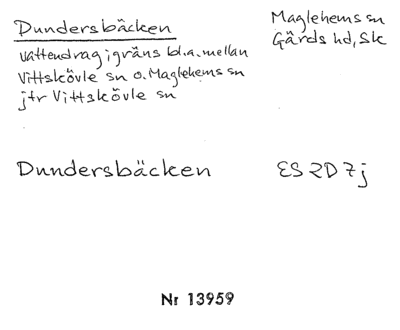 Dundersbäcken
Maglehems sn
Gärds hd, Sk
vattendrag i gräns bl.a. mellan
Vittskövle sn o. Maglehems sn
jfr Vittskövle sn
Dundersbäcken
ES 2D 7j
Nr 13959